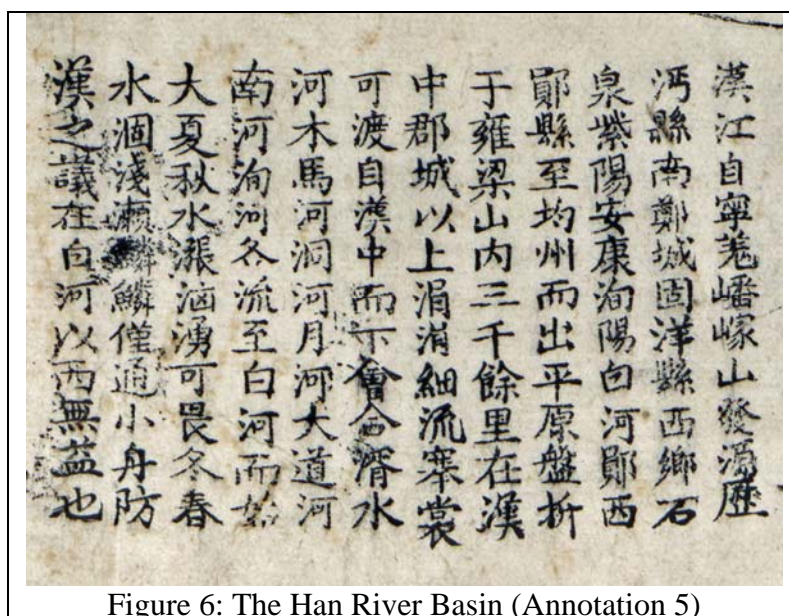 漢江自寧羌嶓嶂山發源歷
沔縣南鄭城固洋縣西鄉石
泉紫陽安康洵陽白河鄖西
鄖縣至均州而出平原盤折
于雍梁山内三千餘里在漢
中郡城以上涓涓細流褰裳
可渡自漢中而下會合湑水
河木馬河洞河月河大道河
南河洵河各流至白河而始
大夏秋水漲洶湧可畏冬春
水涸淺瀨鱗鱗僅通小舟防
漢之議在白河以西無益也
Figure 6: The Han River Basin (Annotation 5)